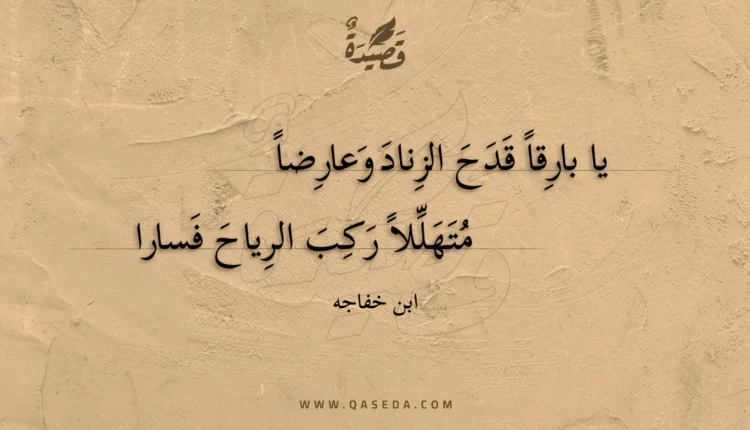 قَصِيدَةٌ
يا بارِقاً قَدَحَ الزِنادَ وَعارِضاً
مُتَهَلِّلاً رَكِبَ الرِياحَ فَسارا
ابن خفاجه
WWW.QASEDA.COM